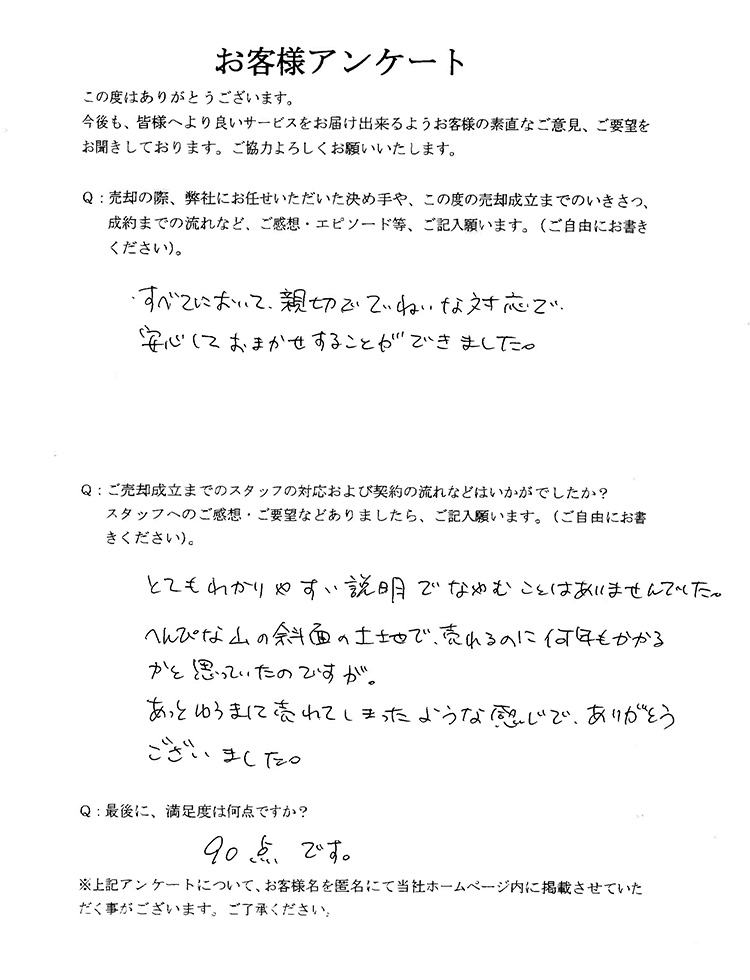 お客様アンケート
この度はありがとうございます。
今後も、皆様へより良いサービスをお届け出来るようお客様の素直なご意見、ご要望を
お聞きしております。ご協力よろしくお願いいたします。
Q：売却の際、弊社にお任せいただいた決め手や、この度の売却成立までのいきさつ、
成約までの流れなど、ご感想・エピソード等、ご記入願います。（ご自由にお書き
ください）。
すべてにおいて、親切でていねいな対応で、
安心しておまかせすることができました。
Q：ご売却成立までのスタッフの対応および契約の流れなどはいかがでしたか？
スタッフへのご感想・ご要望などありましたら、ご記入願います。（ご自由にお書
きください）。
とてもわかりやすい説明でなやむことはありませんでした。
へんぴな山の斜面の土地で、売れるのに何年もかかる
かと思っていたのですが。
あっとゆうまに売れてしまったような感じで、ありがとう
ございました。
Q：最後に、満足度は何点ですか？
90点です。
※上記アンケートについて、お客様名を匿名にて当社ホームページ内に掲載させていた
だく事がございます。ご了承ください。